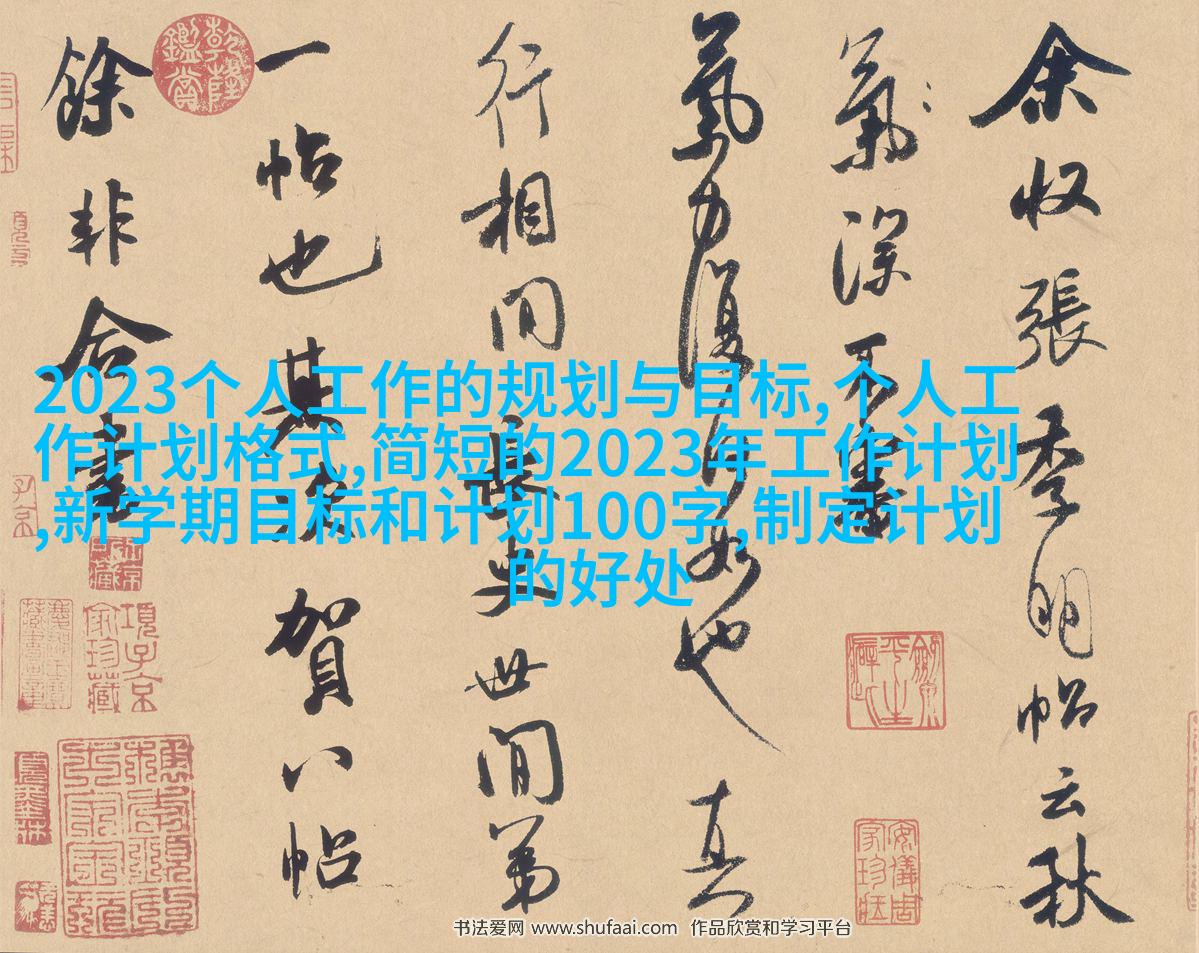 余收張季明帖云秋
氣深不審
氣力復何如也 真
行相間長史世間第
一帖也其次賀八帖
餘非合書
2023个人工作的规划与目标,个人工
作计划格式,简短的2023年工作计划
,新学期目标和计划100字,制定计划
的好处
乾隆
鑑賞
項子京
家珍藏
安儀周
家珍藏
书法爱网 www.shufaai.com 作品欣赏和学习平台